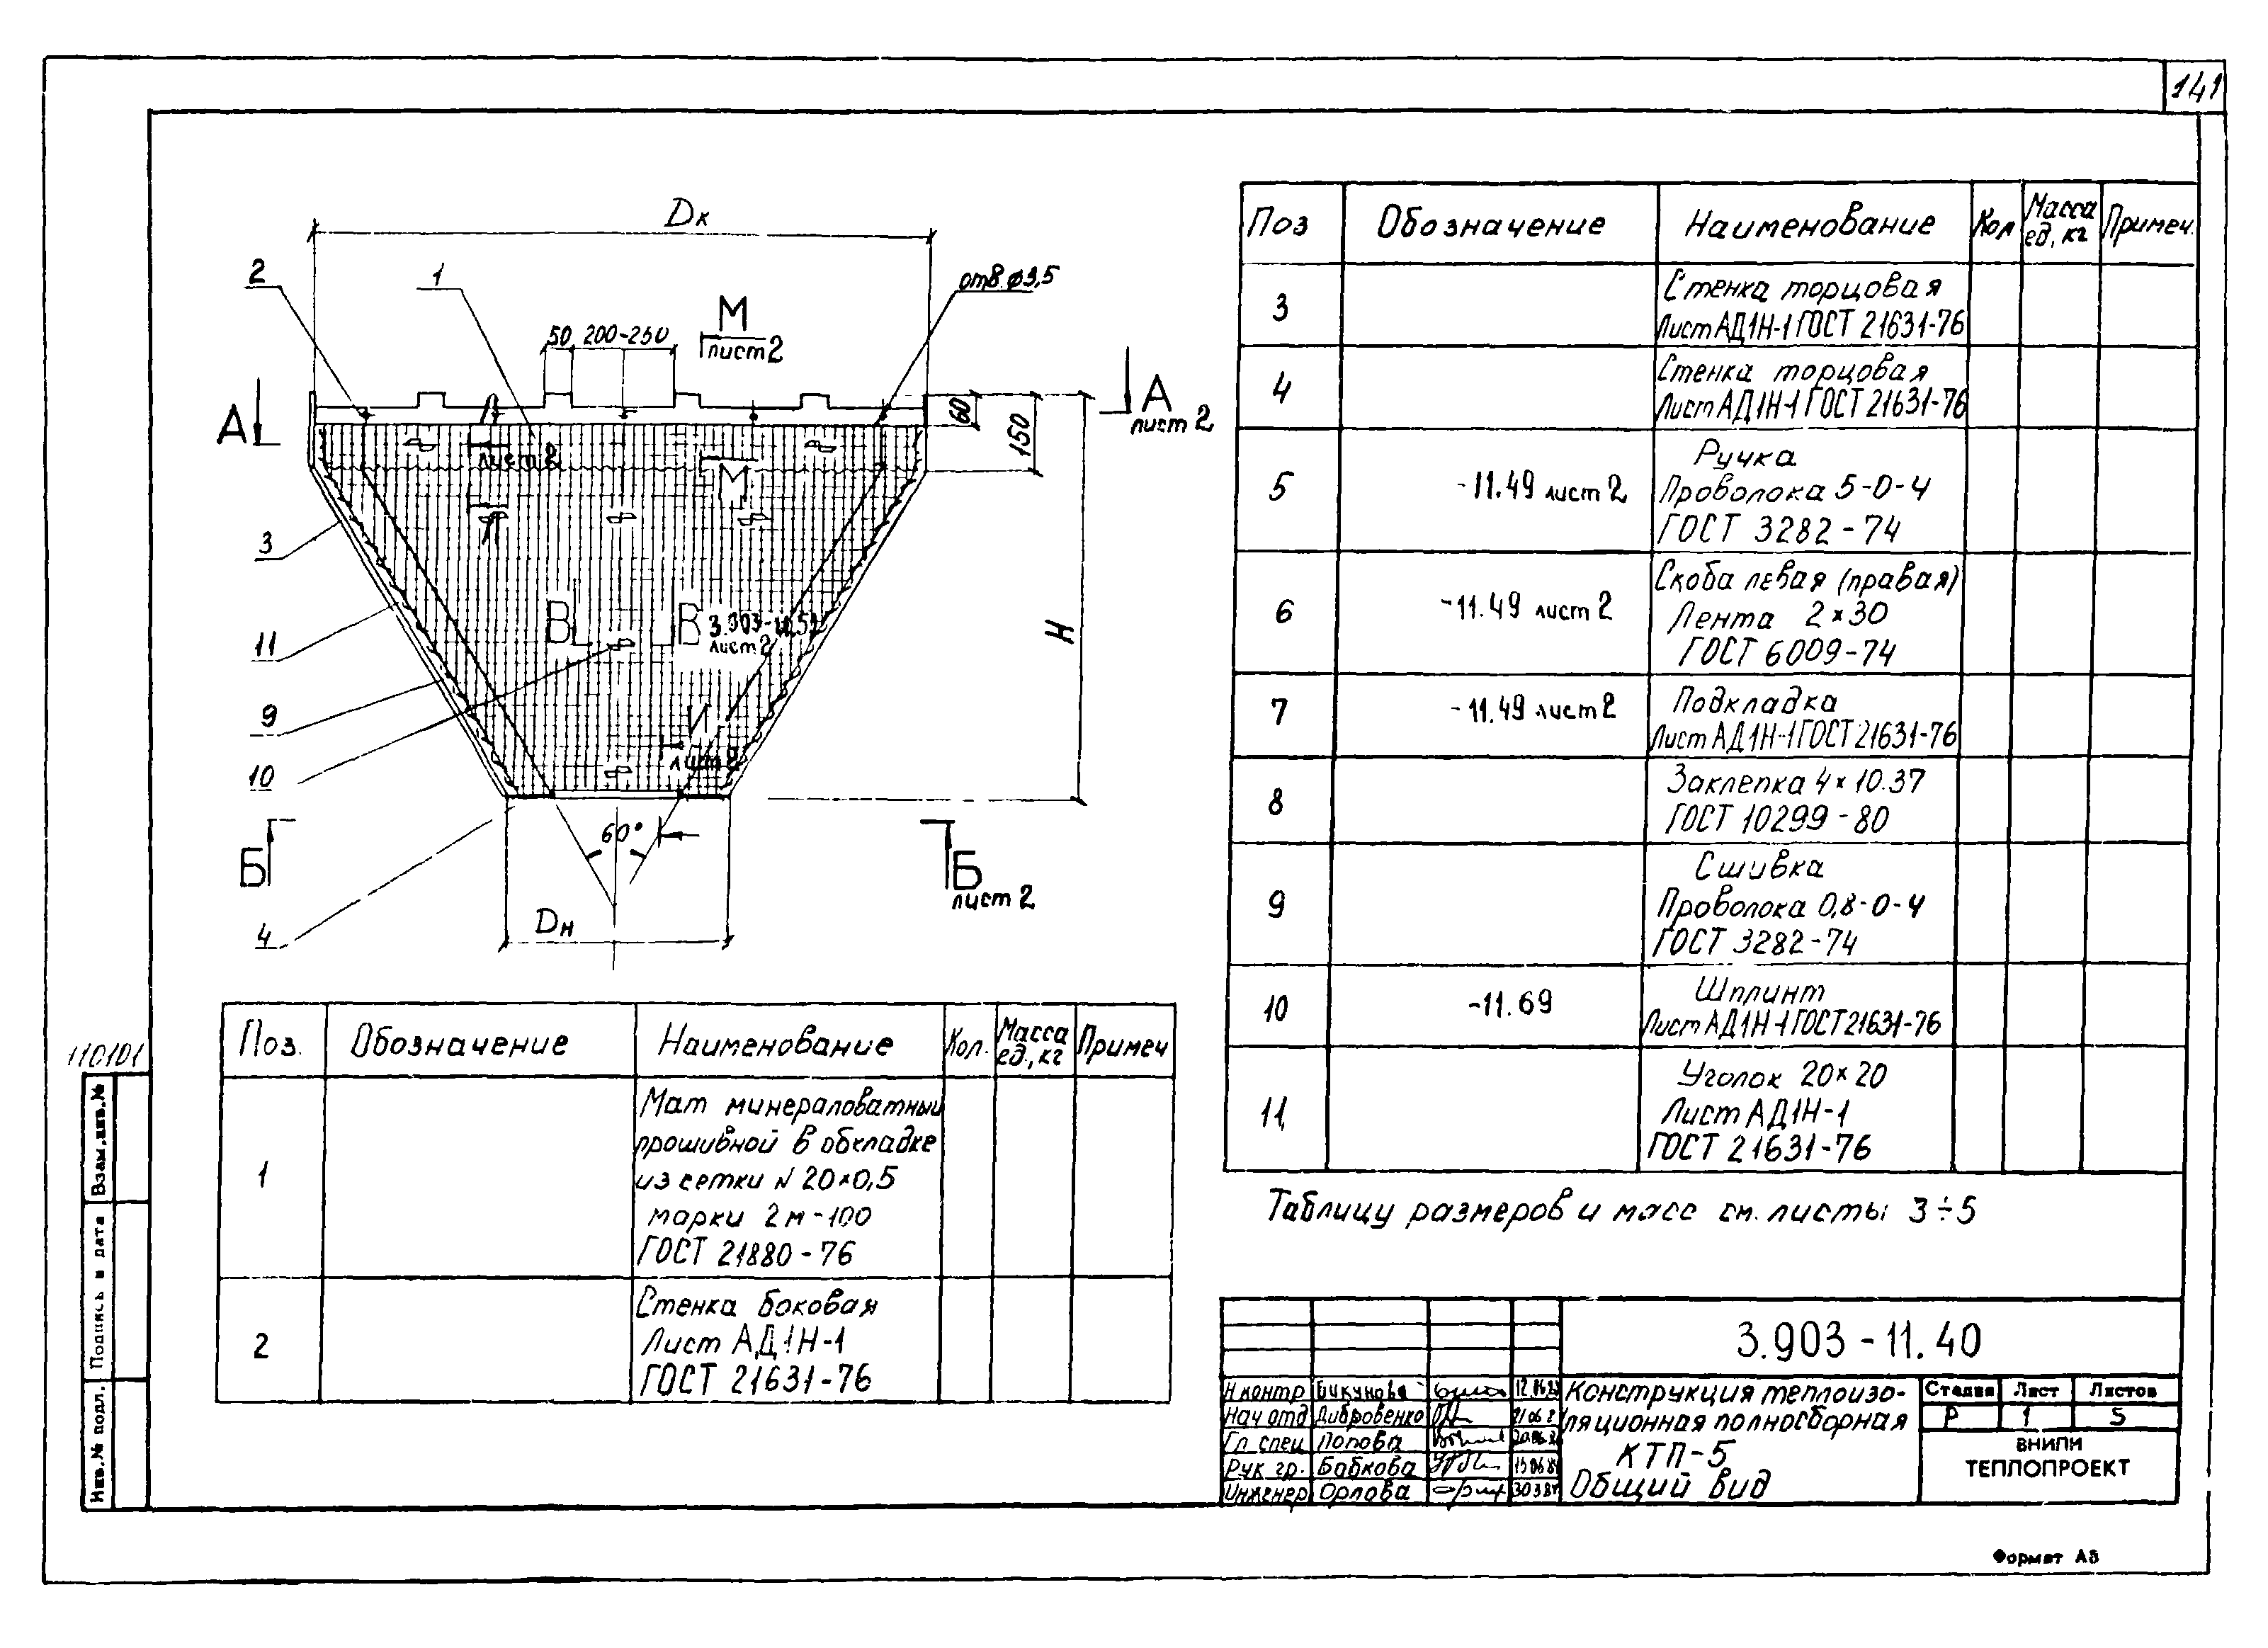 141
Dк
2
1
отв. ф3,5
М
лист 2
50 200-250
А
А
лист 2
60
150
лист 2
М
Л
3
11
В
В
лист 2
H
9
И
10
лист 2
60°
Б
Б
лист 2
4
Dн
Поз. Обозначение Наименование Кол. Масса ед., кг Примеч
1
Мат минераловатный
прошивной в обкладке
из сетки N 20×0,5
марки 2м-100
ГОСТ 21880-76
2
Стенка боковая
Лист АД1Н-1
ГОСТ 21631-76
Поз Обозначение Наименование Кол Масса ед, кг Примеч.
3
Стенка торцовая
Лист АД1Н-1 ГОСТ 21631-76
4
Стенка торцовая
Лист АД1Н-1 ГОСТ 21631-76
5 -11.49 лист 2
Ручка
Проволока 5-0-4
ГОСТ 3282-74
6 -11.49 лист 2
Скоба левая (правая)
Лента 2×30
ГОСТ 6009-74
7 -11.49 лист 2
Подкладка
Лист АД1Н-1 ГОСТ 21631-76
8
Заклепка 4×10.37
ГОСТ 10299-80
9
Сшивка
Проволока 0,8-0-4
ГОСТ 3282-74
10 -11.69
Шплинт
Лист АД1Н-1 ГОСТ 21631-76
11
Уголок 20×20
Лист АД1Н-1
ГОСТ 21631-76
Таблицу размеров и масс см. листы 3÷5
3.903-11.40
Н контр
Нач отд Дибровенко
Гл спец Попова
Рук гр. Бабкова
Инженер Орлова
Конструкция теплоизо-
ляционная полносборная
КТП-5
Общий вид
Стадия Лист Листов
Р 1 5
ВНИПИ
ТЕПЛОПРОЕКТ
110101
Взам.инв.№
Подпись и дата
Инв.№ подл.
Формат А3